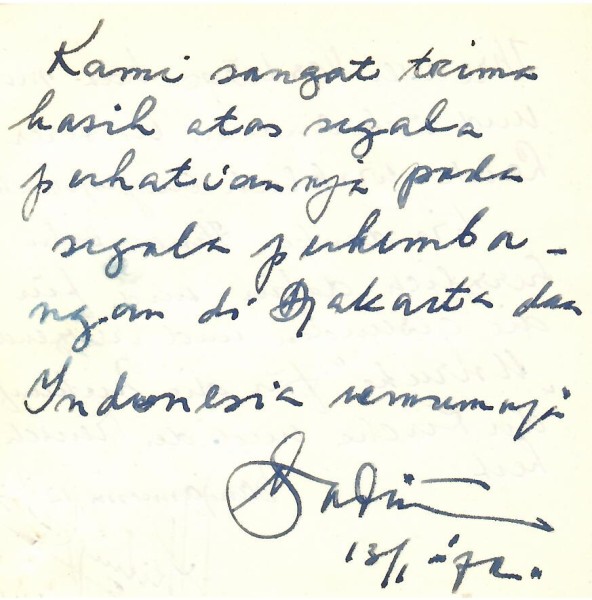 Kami sangat trima
kasih atas segala
perhatiannja pada
segala perkemba-
ngan di Djakarta dan
Indonesia umumnja
13/1 -'72.